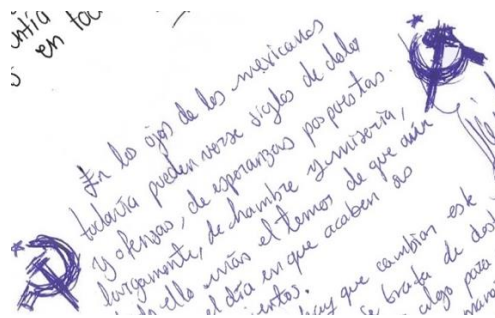 en
En los ojos de los mexicanos
todavía pueden verse siglos de dolor
y ofensas, de esperanzas pospuestas
largamente, de hambre y miseria,
ello más el temor de que aún
el día en que acaben
hay que cambiar este
se trata de
algo para